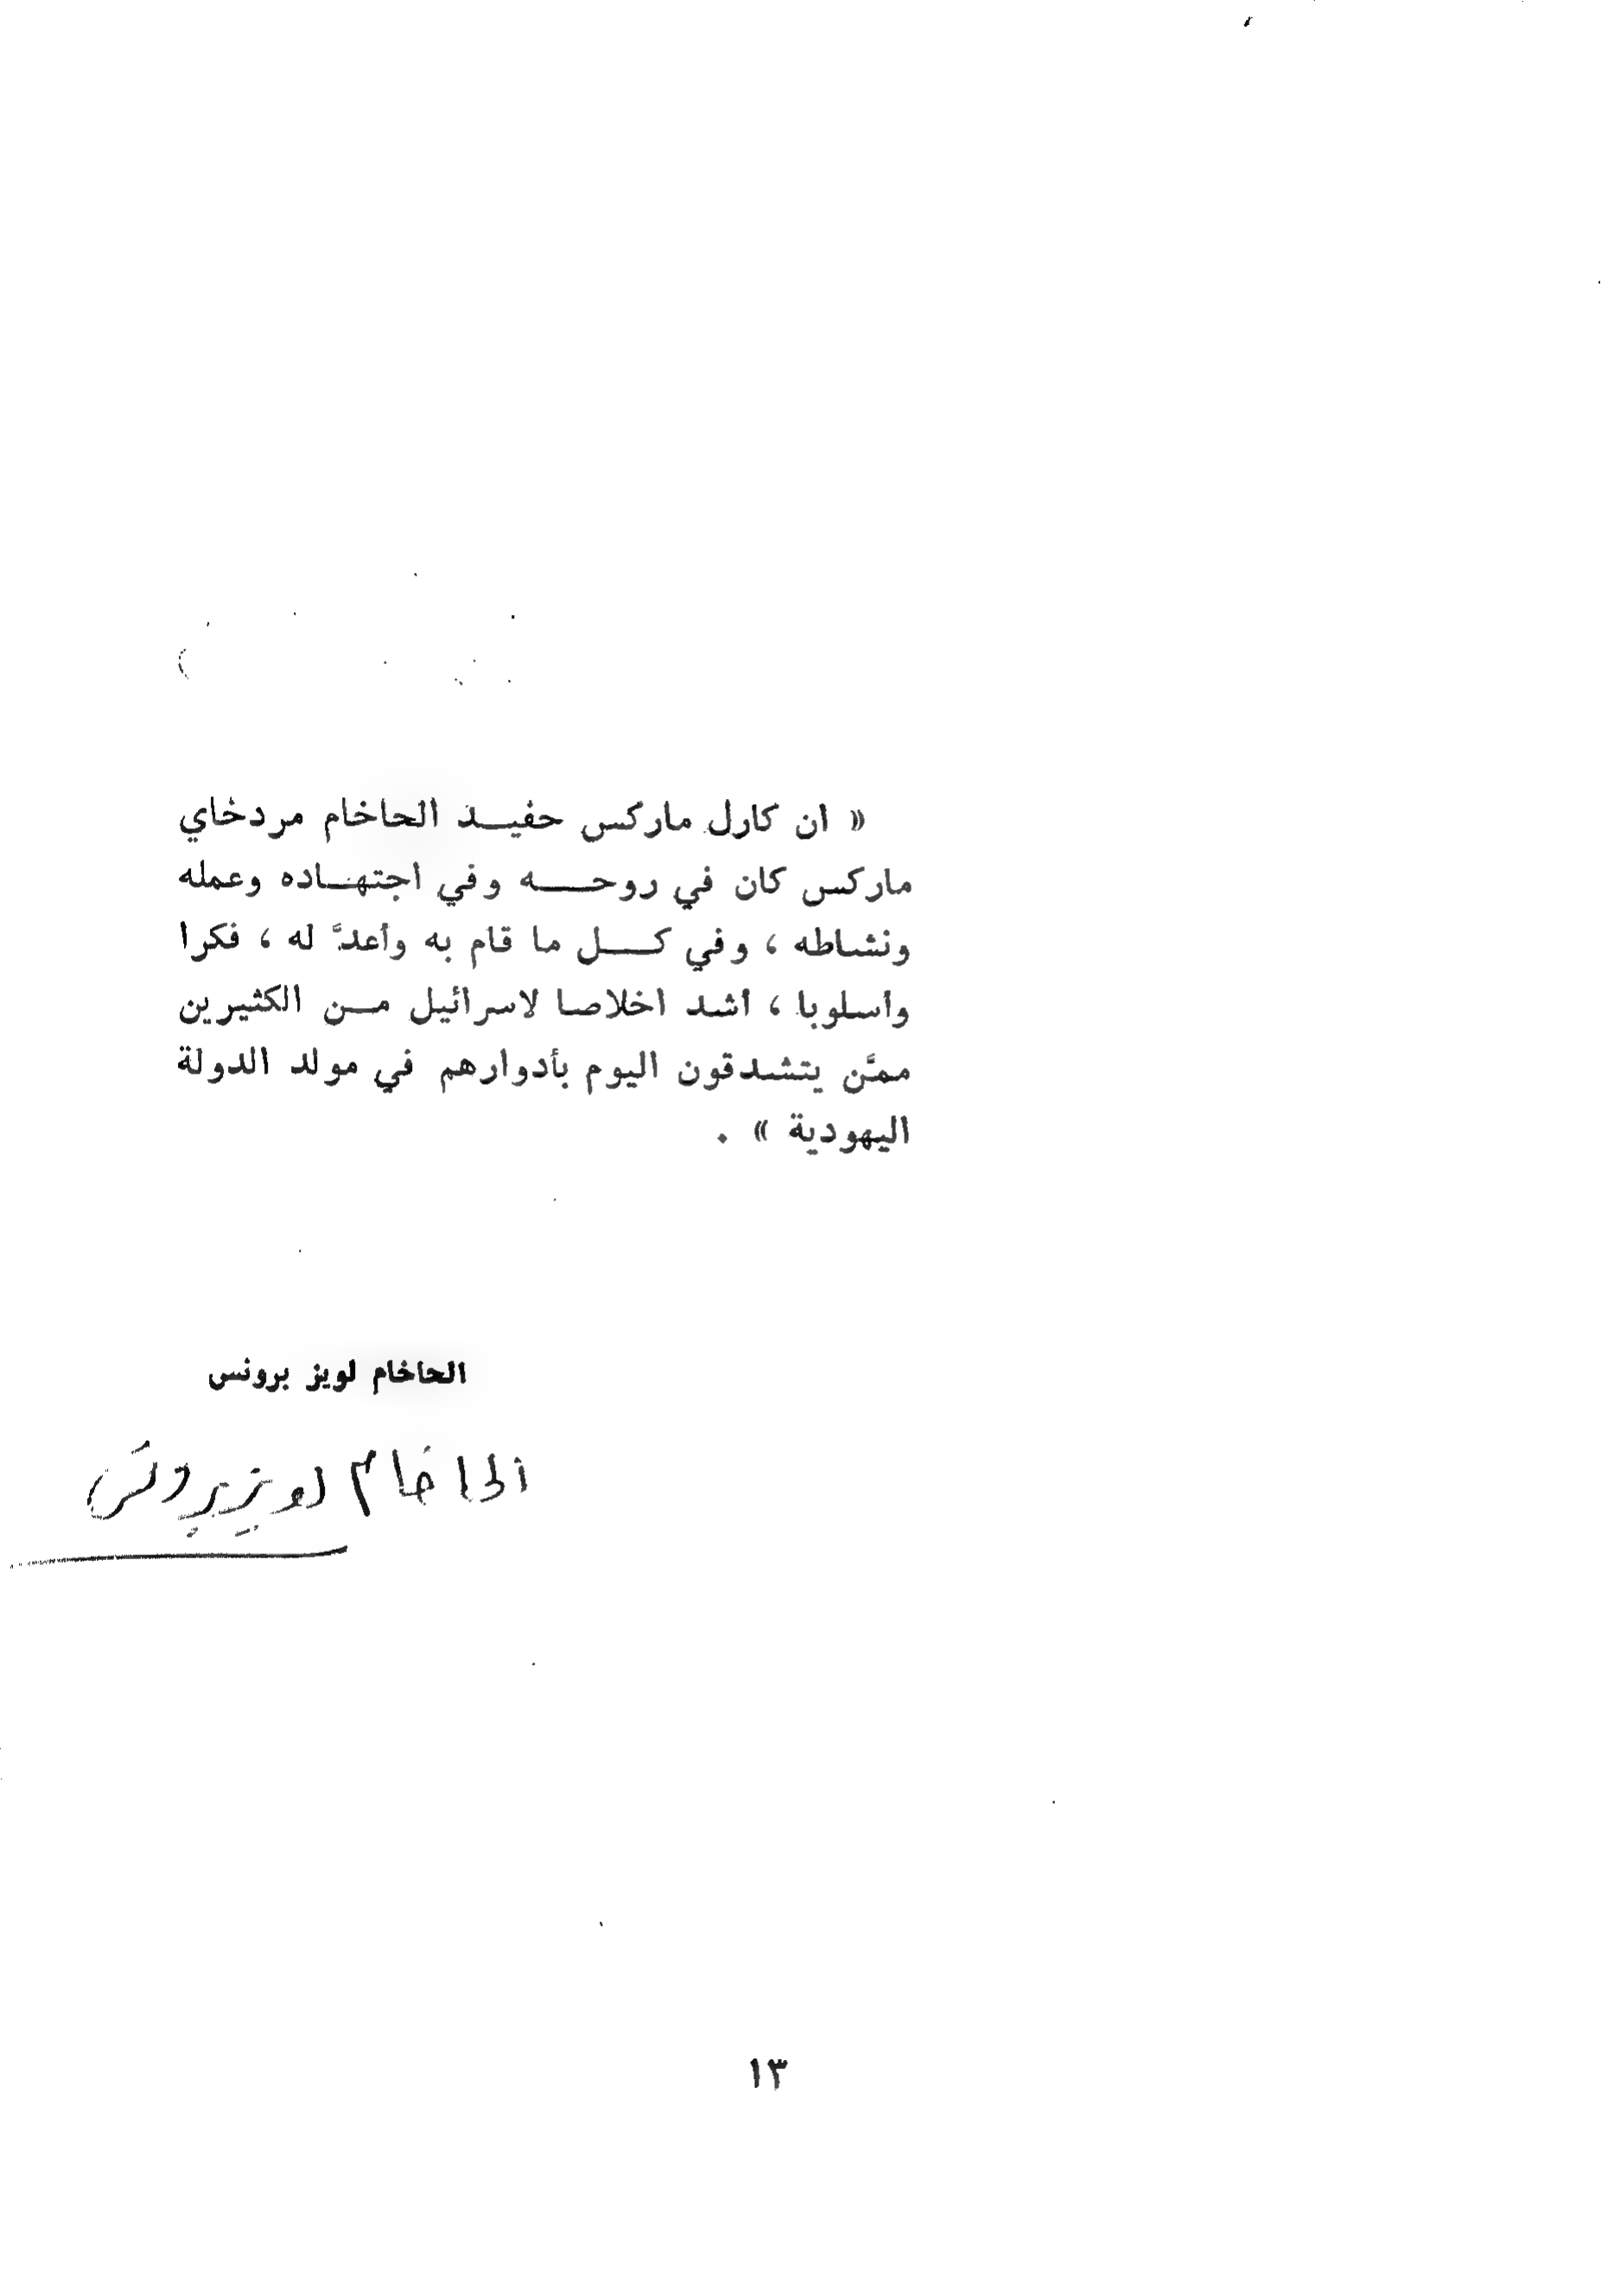 « ان كارل ماركس حفيد الحاخام مردخاي
ماركس كان في روحه وفي اجتهاده وعمله
ونشاطه ، وفي كل ما قام به وأعدَّ له ، فكرا
وأسلوبا ، أشد اخلاصا لاسرائيل من الكثيرين
ممَّن يتشدقون اليوم بأدوارهم في مولد الدولة
اليهودية » .
الحاخام لويز برونس
الحاخام لويز برونس
١٣